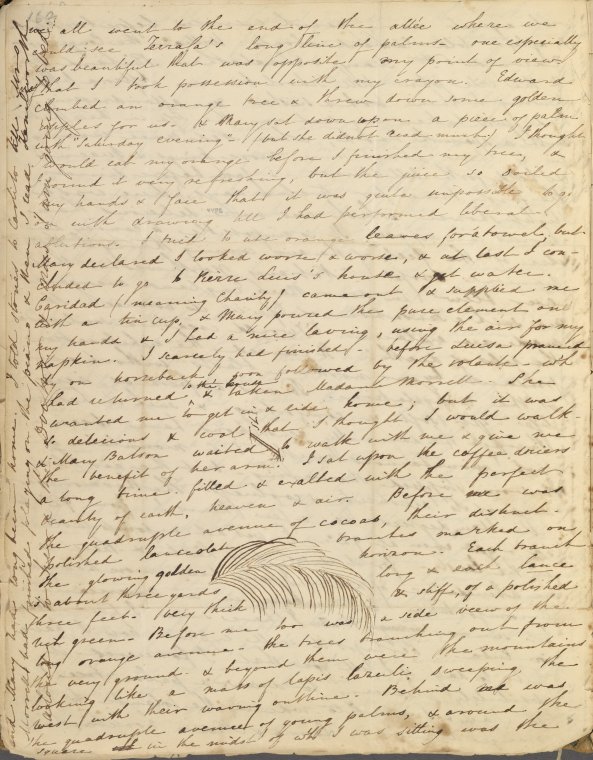 we all went to the end of the allée where we
could see Tairafa's long line of palms - one especially
was beautiful that was opposite my point of view
that I took possession with my crayon. Edward
climbed an orange tree & threw down some golden
apples for us. & Mary sat down upon a piece of palm
with "Saturday evening" - (but she did not read much) I thought
I would eat my orange before I finished my tree, &
found it very refreshing, but the juice so soiled
my hands & face that it was quite impossible to go
on with drawing till I had performed liberal
ablutions. I tried to use orange leaves for a towel, but
Mary declared I looked worse & worse, & at last I con-
cluded to go to Pierre Luis's house & get water.
Caridad (meaning Charity) came out & supplied me
with a tin cup, & Mary poured the pure element on
my hands & I had a nice laving, using the air for my
napkin. I scarcely had finished - before Luisa pranced
by on horseback, soon followed by the volante wh
had returned to the house & taken Madame Morrell. She
wanted me to get in & ride home; but it was
so delicious & cool that I thought I would walk -
& Mary Batson waited to walk with me & give me
the benefit of her arm. I sat upon the coffee driers
a long time filled & exalted with the perfect
beauty of earth, heaven & air. Before me was
the quadruple avenue of cocoas, their distinct
polished lanceolate branches marked on
the glowing golden horizon. Each branch
is about three yards long & each lance
three feet - very thick & stiff, of a polished
rich green. Before me too was a side view of the
long orange avenue - the trees branching out from
the very ground - & beyond them were the mountains
looking like a mass of lapis lazuli, sweeping the
west with their waving outline. Behind me was
the quadruple avenue of young palms, & around the
square in the midst of wh I was sitting was the